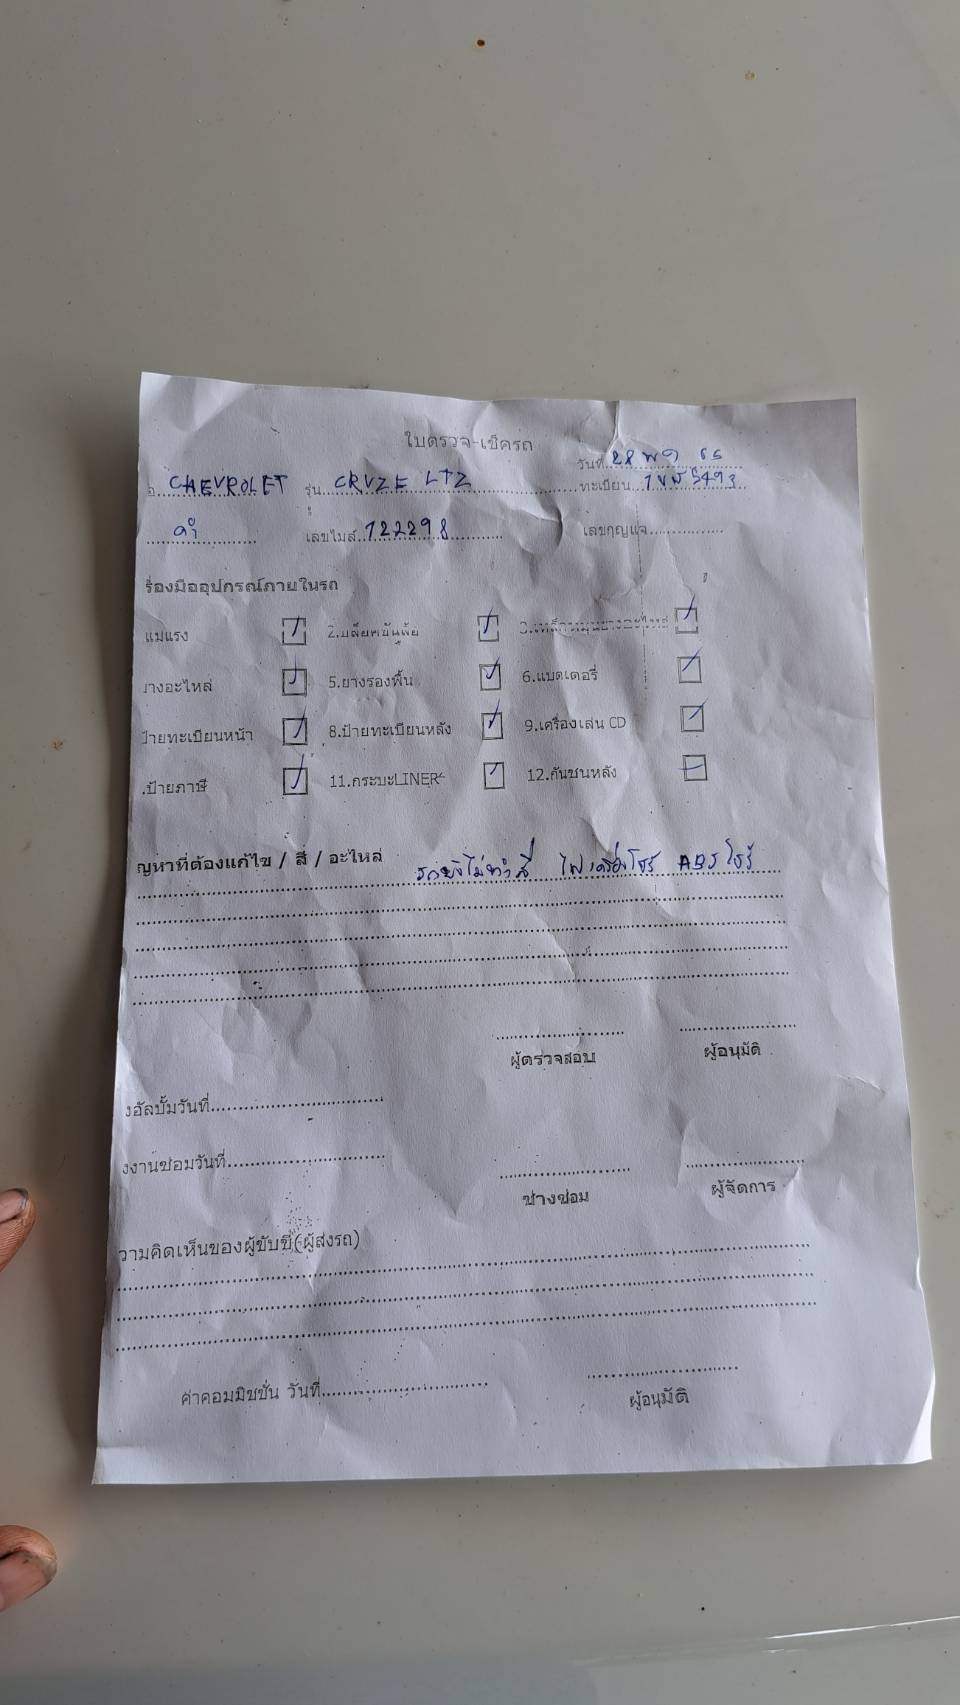 ใบตรวจ-เช็ครถ
วันที่ 28 พ.ย 65
อ CHEVROLET รุ่น CRUZE LTZ ทะเบียน 5493
ดำ เลขไมล์ 122298 เลขกุญแจ
รื่องมืออุปกรณ์ภายในรถ
แม่แรง 2.บล็อคขันล้อ 3.เหล็กหมุนยางอะไหล่
ยางอะไหล่ 5.ยางรองพื้น 6.แบตเตอรี่
ป้ายทะเบียนหน้า 8.ป้ายทะเบียนหลัง 9.เครื่องเล่น CD
.ป้ายภาษี 11.กระบะLINER 12.กันชนหลัง
ญหาที่ต้องแก้ไข / สี / อะไหล่ รถยังไม่ทำสี ไฟเครื่องโชว์ ABS โชว์
ผู้ตรวจสอบ ผู้อนุมัติ
งอัลบั้มวันที่
งงานซ่อมวันที่
ช่างซ่อม ผู้จัดการ
วามคิดเห็นของผู้ขับขี่(ผู้ส่งรถ)
ค่าคอมมิชชั่น วันที่
ผู้อนุมัติ